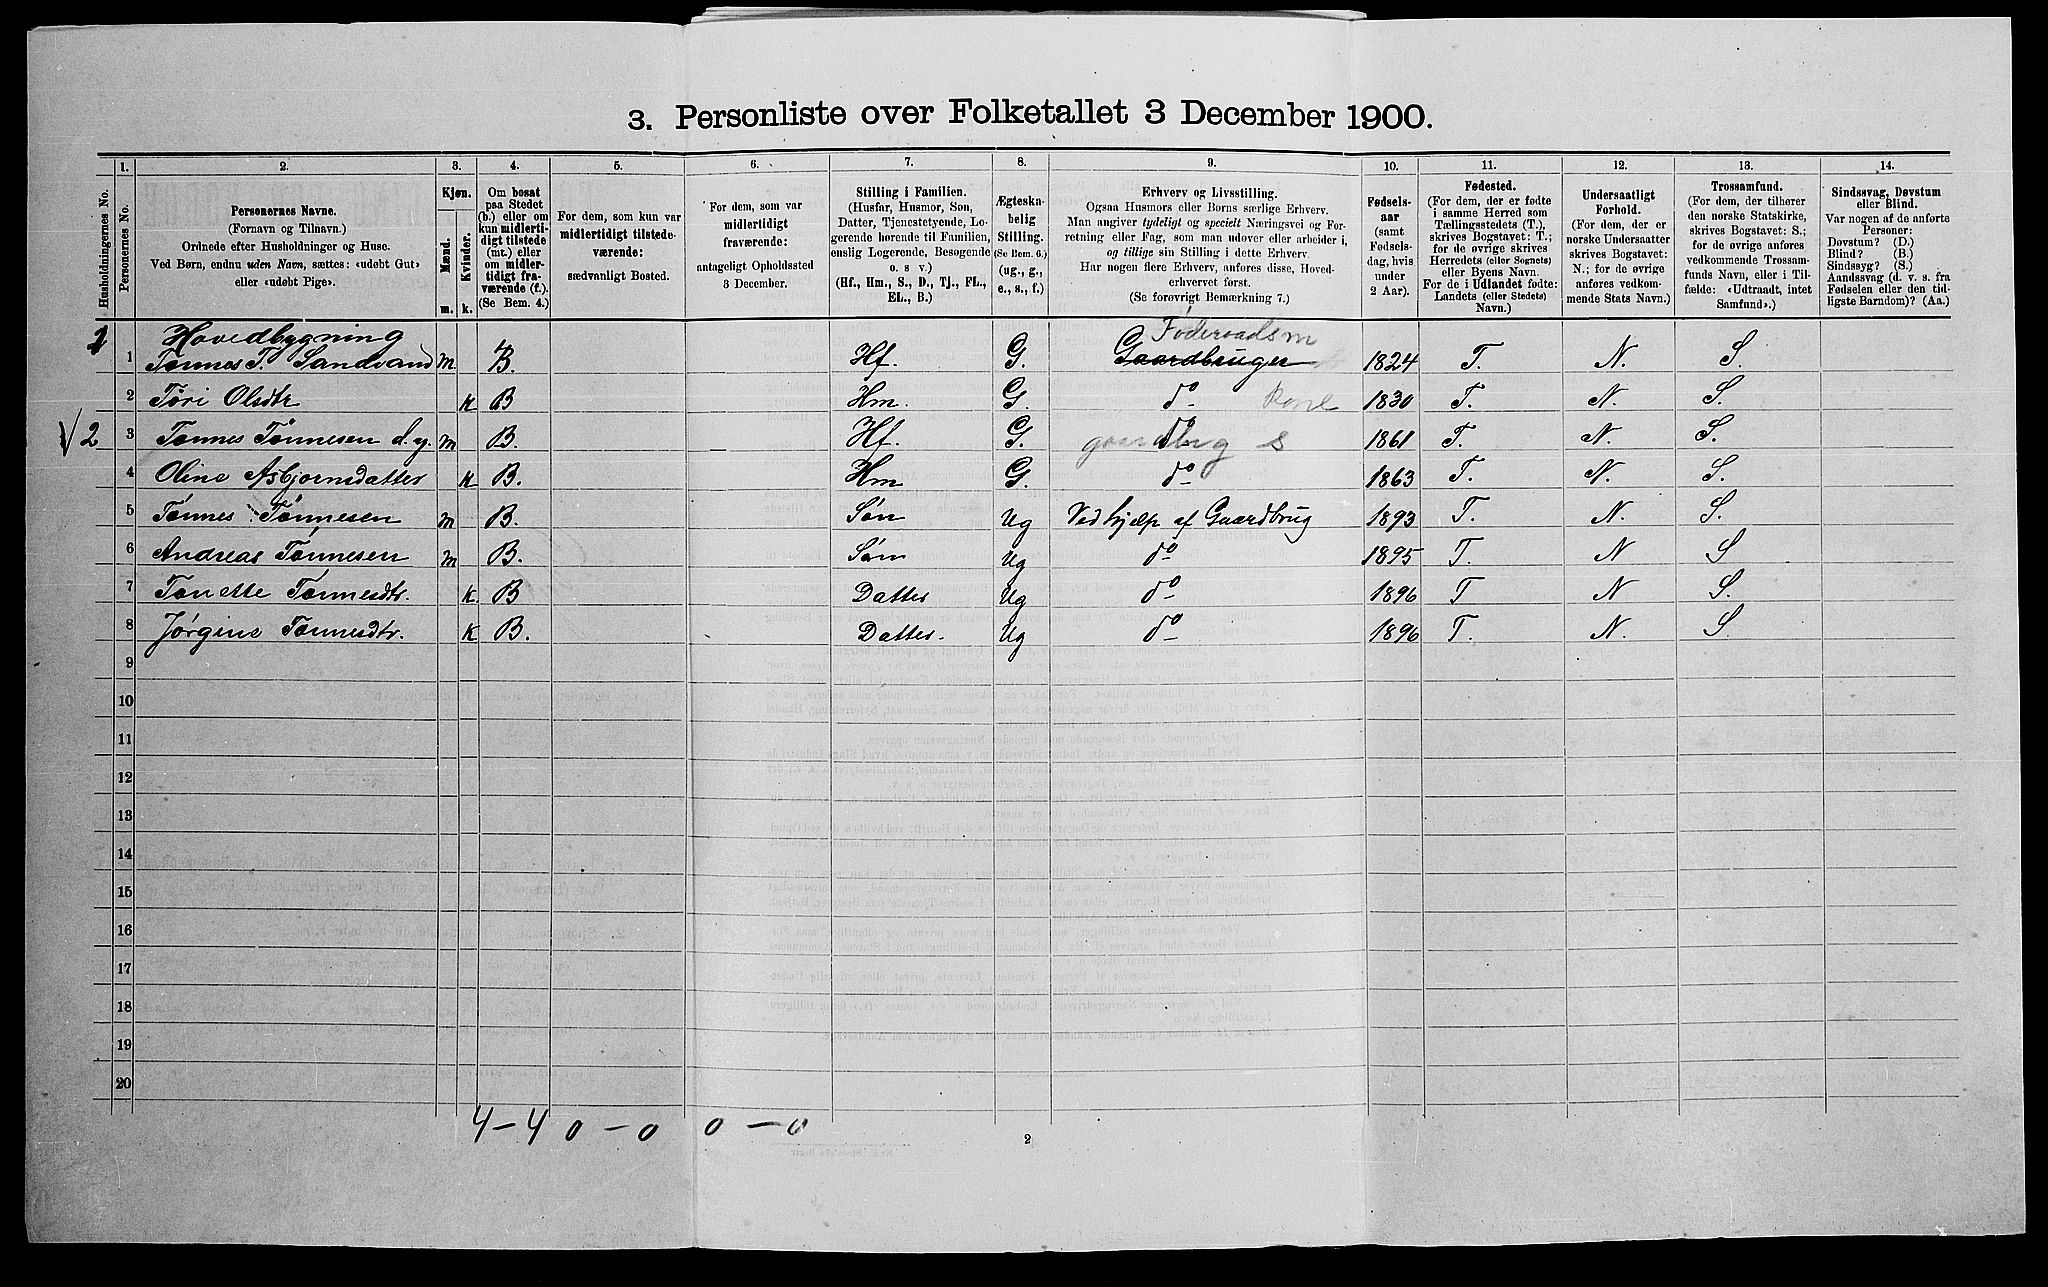 3. Personliste over Folketallet 3 December 1900.
Husholdningernes No.
1. Personernes No.
2. Personernes Navne.
(Fornavn og Tilnavn.)
Ordnede efter Husholdninger og Huse.
Ved Børn, endnu uden Navn, sættes: «udøbt Gut»
eller «udøbt Pige».
3. Kjøn.
Mænd. Kvinder.
m. k.
4.
Om bosat
paa Stedet
(b.) eller om
kun midlerti-
digt tilstede
(mt.) eller
om midler-
tidigt fra-
værende (f.).
(Se Bem. 4.)
5.
For dem, som kun var
midlertidigt tilstede-
værende:
sædvanligt Bosted.
6.
For dem, som var
midlertidigt
fraværende:
antageligt Opholdssted
3 December.
7.
Stilling i Familien.
(Husfar, Husmor, Søn,
Datter, Tjenestetyende, Lo-
gerende hørende til Familien,
enslig Logerende, Besøgende
o. s v.)
(Hf., Hm., S., D., Tj., FL.,
EL., B.)
8.
Ægteska-
belig
Stilling.
(Se Bem. 6.)
(ug., g.,
e., s., f.)
9.
Erhverv og Livsstilling.
Ogsaa Husmors eller Børns særlige Erhverv.
Man angiver tydeligt og specielt Næringsvei og For-
retning eller Fag, som man udøver eller arbeider i,
og tillige sin Stilling i dette Erhverv.
Har nogen flere Erhverv, anføres disse, Hoved-
erhvervet først.
(Se forøvrigt Bemærkning 7.)
10.
Fødsels-
aar
(samt
Fødsels-
dag, hvis
under
2 Aar).
11.
Fødested.
(For dem, der er fødte
i samme Herred som
Tællingsstedets (T.),
skrives Bogstavet: T.;
for de øvrige skrives
Herredets (eller Sognets)
eller Byens Navn.
For de i Udlandet fødte:
Landets (eller Stedets)
Navn.)
12.
Undersaatligt
Forhold.
(For dem, der er
norske Undersaatter
skrives Bogstavet:
N.; for de øvrige
anføres vedkom-
mende Stats Navn.)
13.
Trossamfund.
(For dem, der tilhører
den norske Statskirke,
skrives Bogstavet: S.;
for de øvrige anføres
vedkommende Trossam-
funds Navn, eller i Til-
fælde: «Udtraadt, intet
Samfund».)
14.
Sindssvag, Døvstum
eller Blind.
Var nogen af de anførte
Personer:
Døvstum? (D.)
Blind? (B.)
Sindssyg? (S.)
Aandssvag (d. v. s. fra
Fødselen eller den tid-
ligste Barndom)? (Aa.)
Hovedbygning Føderaadsm
1 Tønnes T. Sandvand m B. Hf. G. Gaardbruger 1824 T. N. S.
2 Tøri Olsdtr k B Hm. G. do kone 1830 T. N. S.
√2 3 Tønnes Tønnesen d. y. m B. Hf. G. do gaardbrug s 1861 T. N. S.
4 Oline Asbjørnsdatter k B. Hm G. do 1863 T. N. S.
5 Tønnes Tønnesen m B. Søn ug Ved hjælp af Gaardbrug 1893 T. N. S.
6 Andreas Tønnesen m B. Søn ug do 1895 T. N S
7 Tonette Tønnesdtr. k. B Datter ug do 1896 T N S.
8 Jørgine Tønnesdtr. k B. Datter. ug do 1896 T. N. S.
9
10
11
12
13
14
15
16
17
18
19
20
4-4 0-0 0-0
2